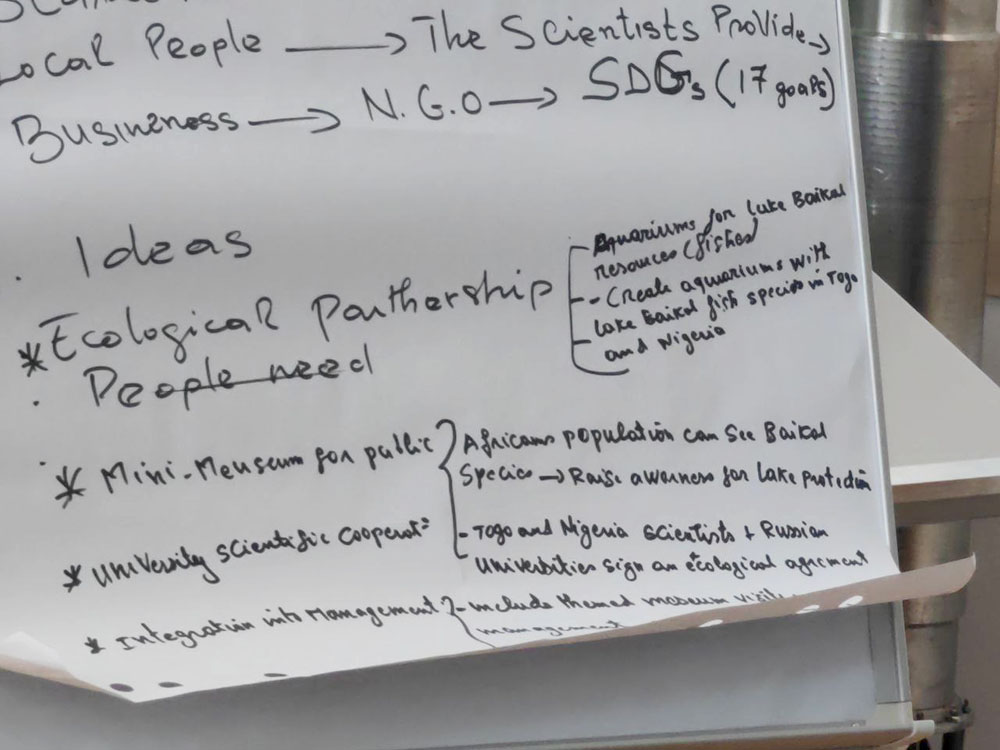 Local People → The Scientists Provide →
Businness → N.G.O → SDGs (17 goals)
. Ideas
* Ecological Parthership
Aquariums for Lake Baikal
resources (fishes)
- Create aquariums with
Lake Baikal fish species in Togo
and Nigeria
. People need
* Mini-Meuseum for public
Africans population can See Baikal
Species → Raise awarness for Lake protection
* University scientific cooperat=
- Togo and Nigeria scientists + Russian
Universities sign an ecological agrement
* Integration into Management
- include themed museum visits
management